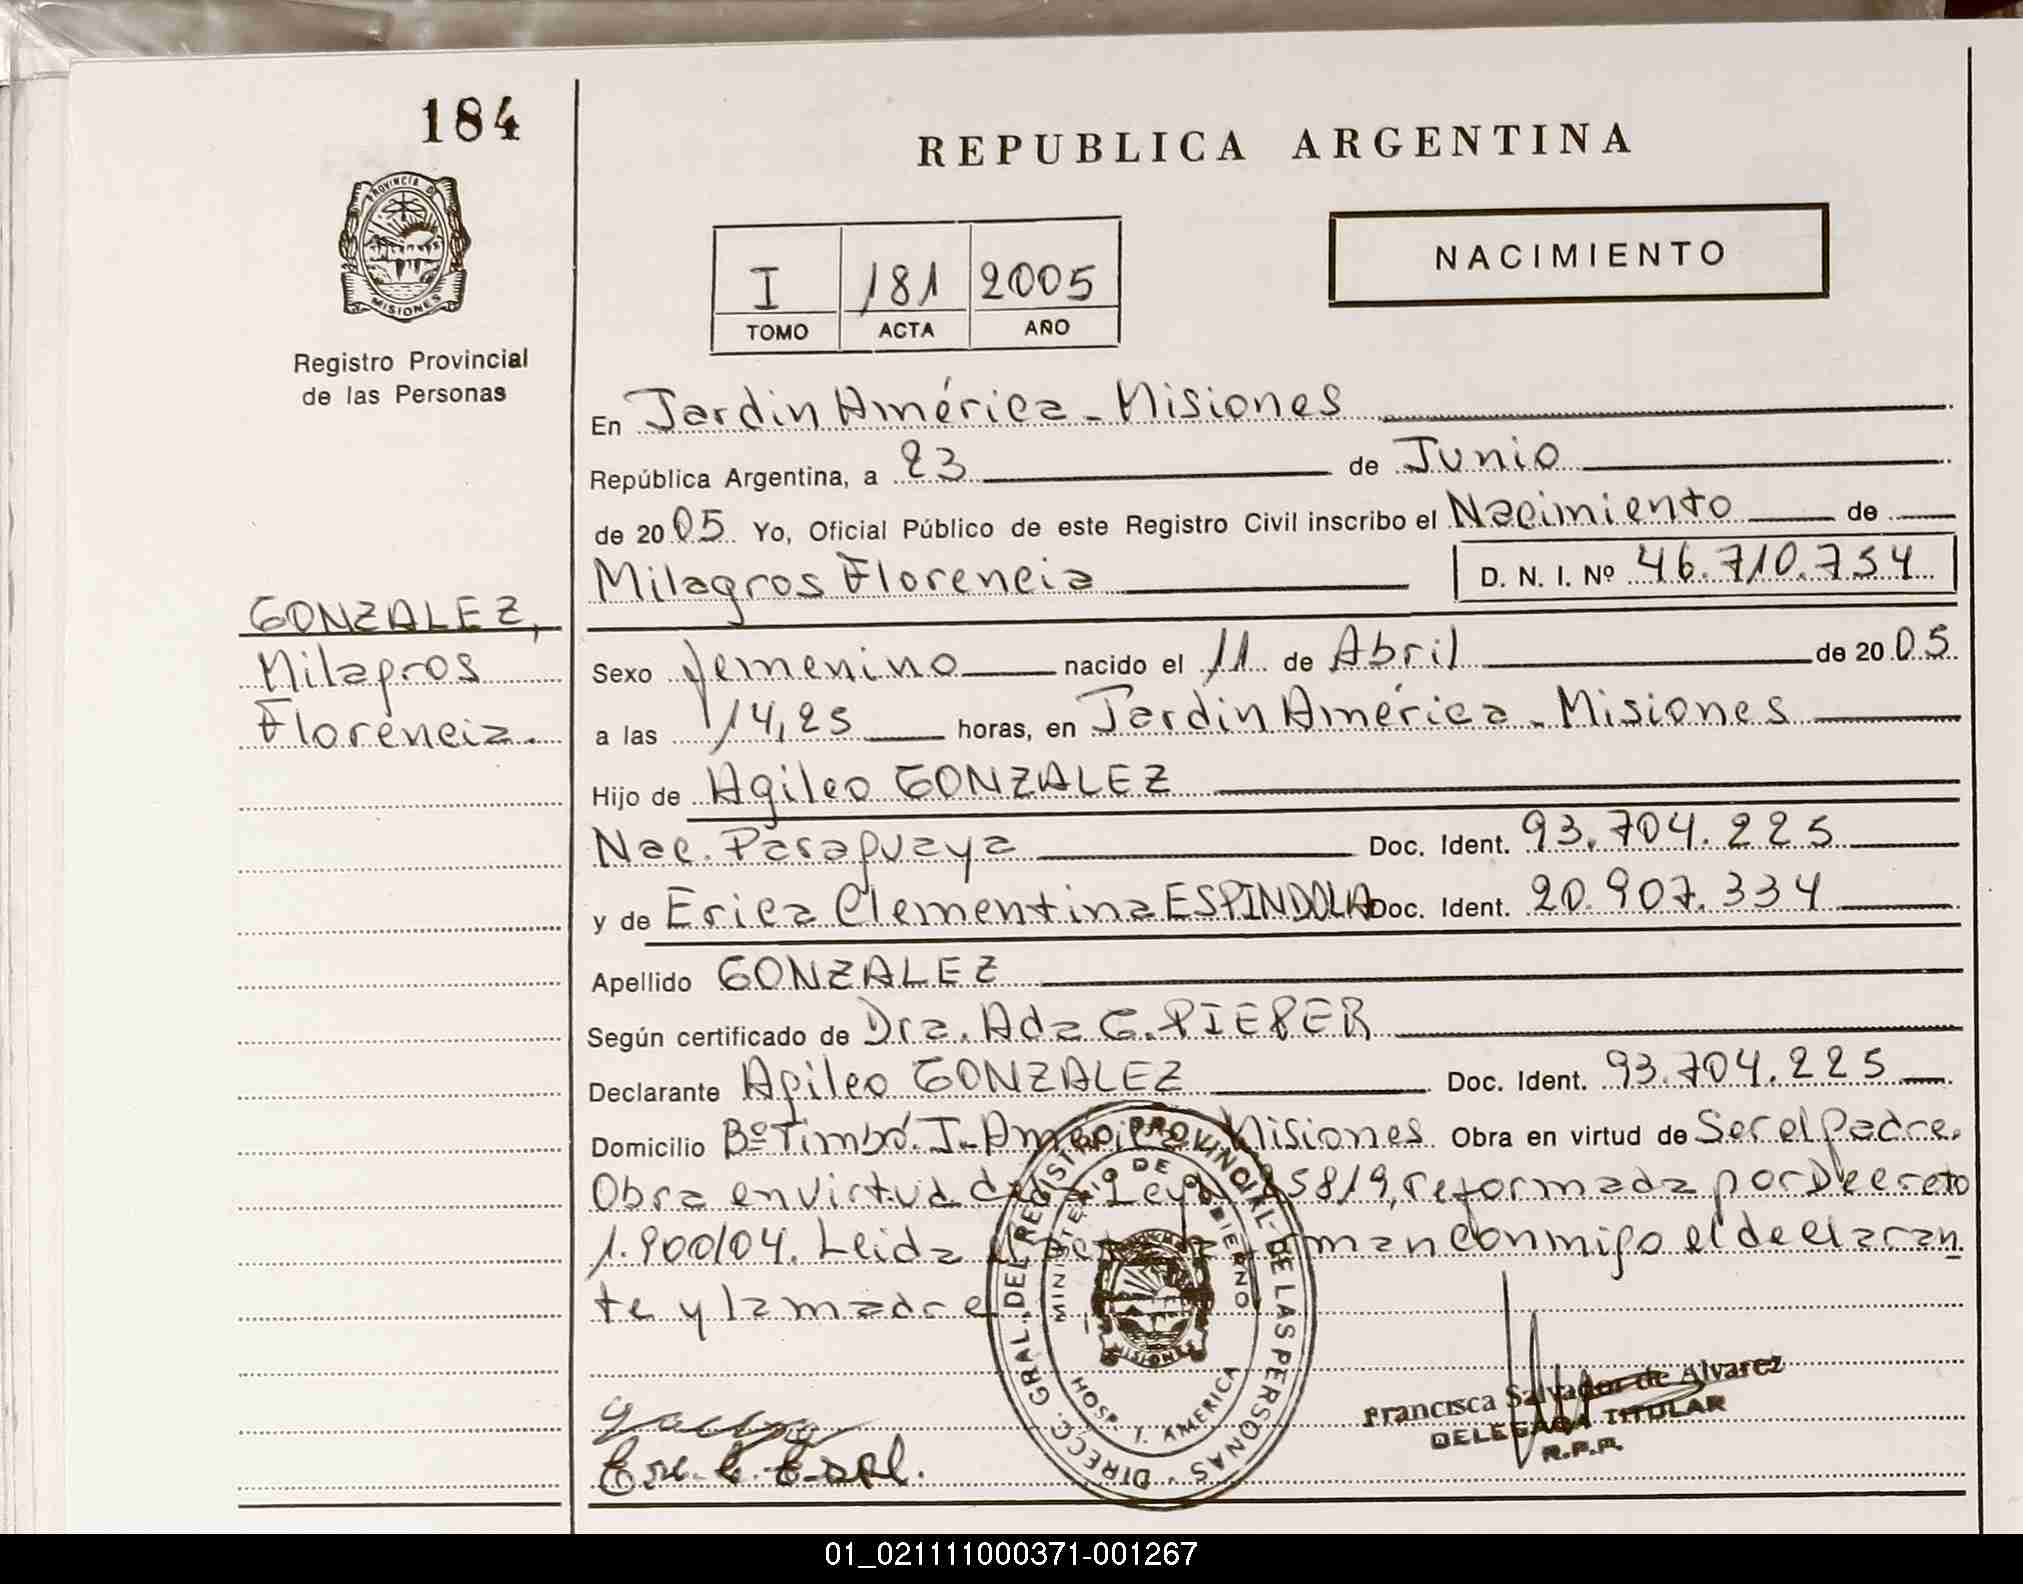 184
PROVINCIA DE
MISIONES
Registro Provincial
de las Personas
GONZALEZ,
Milagros
Florencia.
REPUBLICA ARGENTINA
NACIMIENTO
I 181 2005
TOMO ACTA AÑO
En Jardin América - Misiones
República Argentina, a 23 de Junio
de 2005 Yo, Oficial Público de este Registro Civil inscribo el Nacimiento de
Milagros Florencia D. N. I. Nº 46.710.754
Sexo femenino nacido el 11 de Abril de 2005
a las 14,25 horas, en Jardin América - Misiones
Hijo de Agileo GONZALEZ
Nac. Paraguaya Doc. Ident. 93.704.225
y de Erica Clementina ESPINDOLA Doc. Ident. 20.907.334
Apellido GONZALEZ
Según certificado de Dra. Ada G. PIEPER
Declarante Agileo GONZALEZ Doc. Ident. 93.704.225
Domicilio Bº Timbó. J. América Misiones Obra en virtud de Ser el Padre.
Obra en virtud de la Ley 25819, reformada por Decreto
1.900/04. Leida el man conmigo el declaran
te y la madre
DIRECC. GRAL. DEL REGISTRO PROVINCIAL DE LAS PERSONAS
MINISTERIO DE GOBIERNO
MISIONES
HOSP. J. AMERICA
Francisca Salvador de Alvarez
DELEGADA TITULAR
R.P.P.
01_021111000371-001267